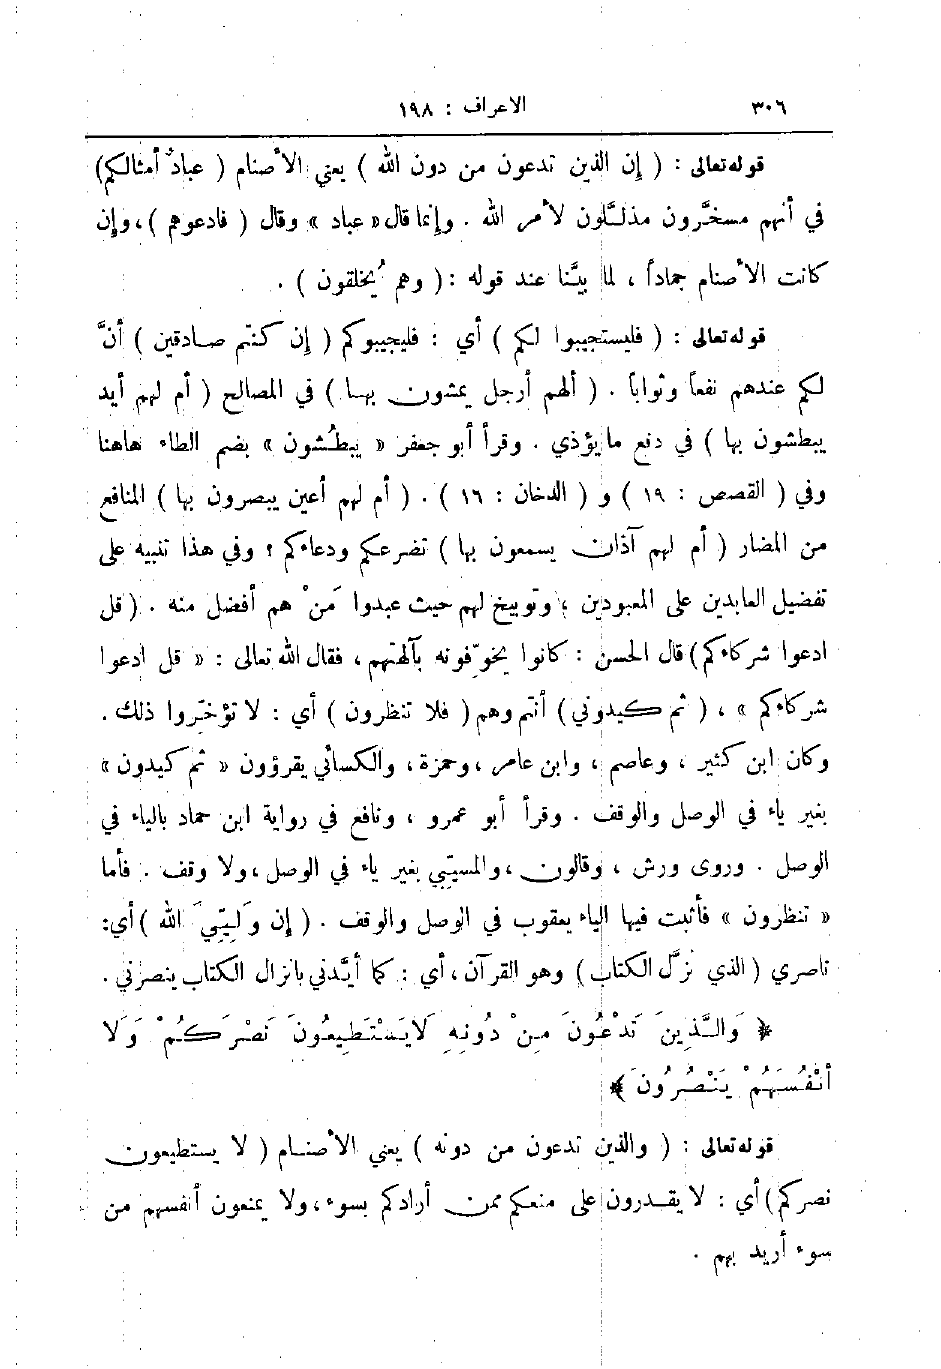 ٣٠٦ الاعراف : ١٩٨
قوله تعالى : ( إن الذين تدعون من دون الله ) يعني الأصنام ( عبادٌ أمثالكم)
في أنهم مسخَّرون مذلَّلون لأمر الله . وإنما قال « عباد » وقال ( فادعوهم ) ، وإن
كانت الأصنام جماداً ، لما بيَّنا عند قوله : ( وهم يُخلقون ) .
قوله تعالى : ( فليستجيبوا لكم ) أي : فليجيبوكم ( إن كنتم صادقين ) أنَّ
لكم عندهم نفعاً وثواباً . ( ألهم أرجل يمشون بها ) في المصالح ( أم لهم أيد
يبطشون بها ) في دفع ما يؤذي . وقرأ أبو جعفر « يبطُشون » بضم الطاء هاهنا
وفي ( القصص : ١٩ ) و ( الدخان : ١٦ ) . ( أم لهم أعين يبصرون بها ) المنافع
من المضار ( أم لهم آذان يسمعون بها ) تضرعكم ودعاءكم ؟ وفي هذا تنبيه على
تفضيل العابدين على المعبودين ؛ وتوبيخ لهم حيث عبدوا مَنْ هم أفضل منه . ( قل
ادعوا شركاءكم) قال الحسن : كانوا يخوِّفونه بآلهتهم ، فقال الله تعالى : « قل ادعوا
شركاءكم » ، ( ثم كيدوني ) أنتم وهم ( فلا تنظرون ) أي : لا تؤخِّروا ذلك .
وكان ابن كثير ، وعاصم ، وابن عامر ، وحمزة ، والكسائي يقرؤون « ثم كيدون »
بغير ياء في الوصل والوقف . وقرأ أبو عمرو ، ونافع في رواية ابن حماد بالياء في
الوصل . وروى ورش ، وقالون ، والمسيّبي بغير ياء في الوصل ، ولا وقف . فأما
« تنظرون » فأثبت فيها الياء يعقوب في الوصل والوقف . ( إن وَلِيِّيَ الله ) أي:
ناصري ( الذي نزَّل الكتاب ) وهو القرآن ، أي : كما أيَّدني بانزال الكتاب ينصرني .
﴿ وَالَّذِينَ تَدْعُونَ مِنْ دُونِهِ لَا يَسْتَطِيعُونَ نَصْرَكُمْ وَلَا
أَنْفُسَهُمْ يَنْصُرُونَ ﴾
قوله تعالى : ( والذين تدعون من دونه ) يعني الأصنام ( لا يستطيعون
نصركم ) أي : لا يقدرون على منعكم ممن أرادكم بسوء ، ولا يمنعون أنفسهم من
سوء أريد بهم .